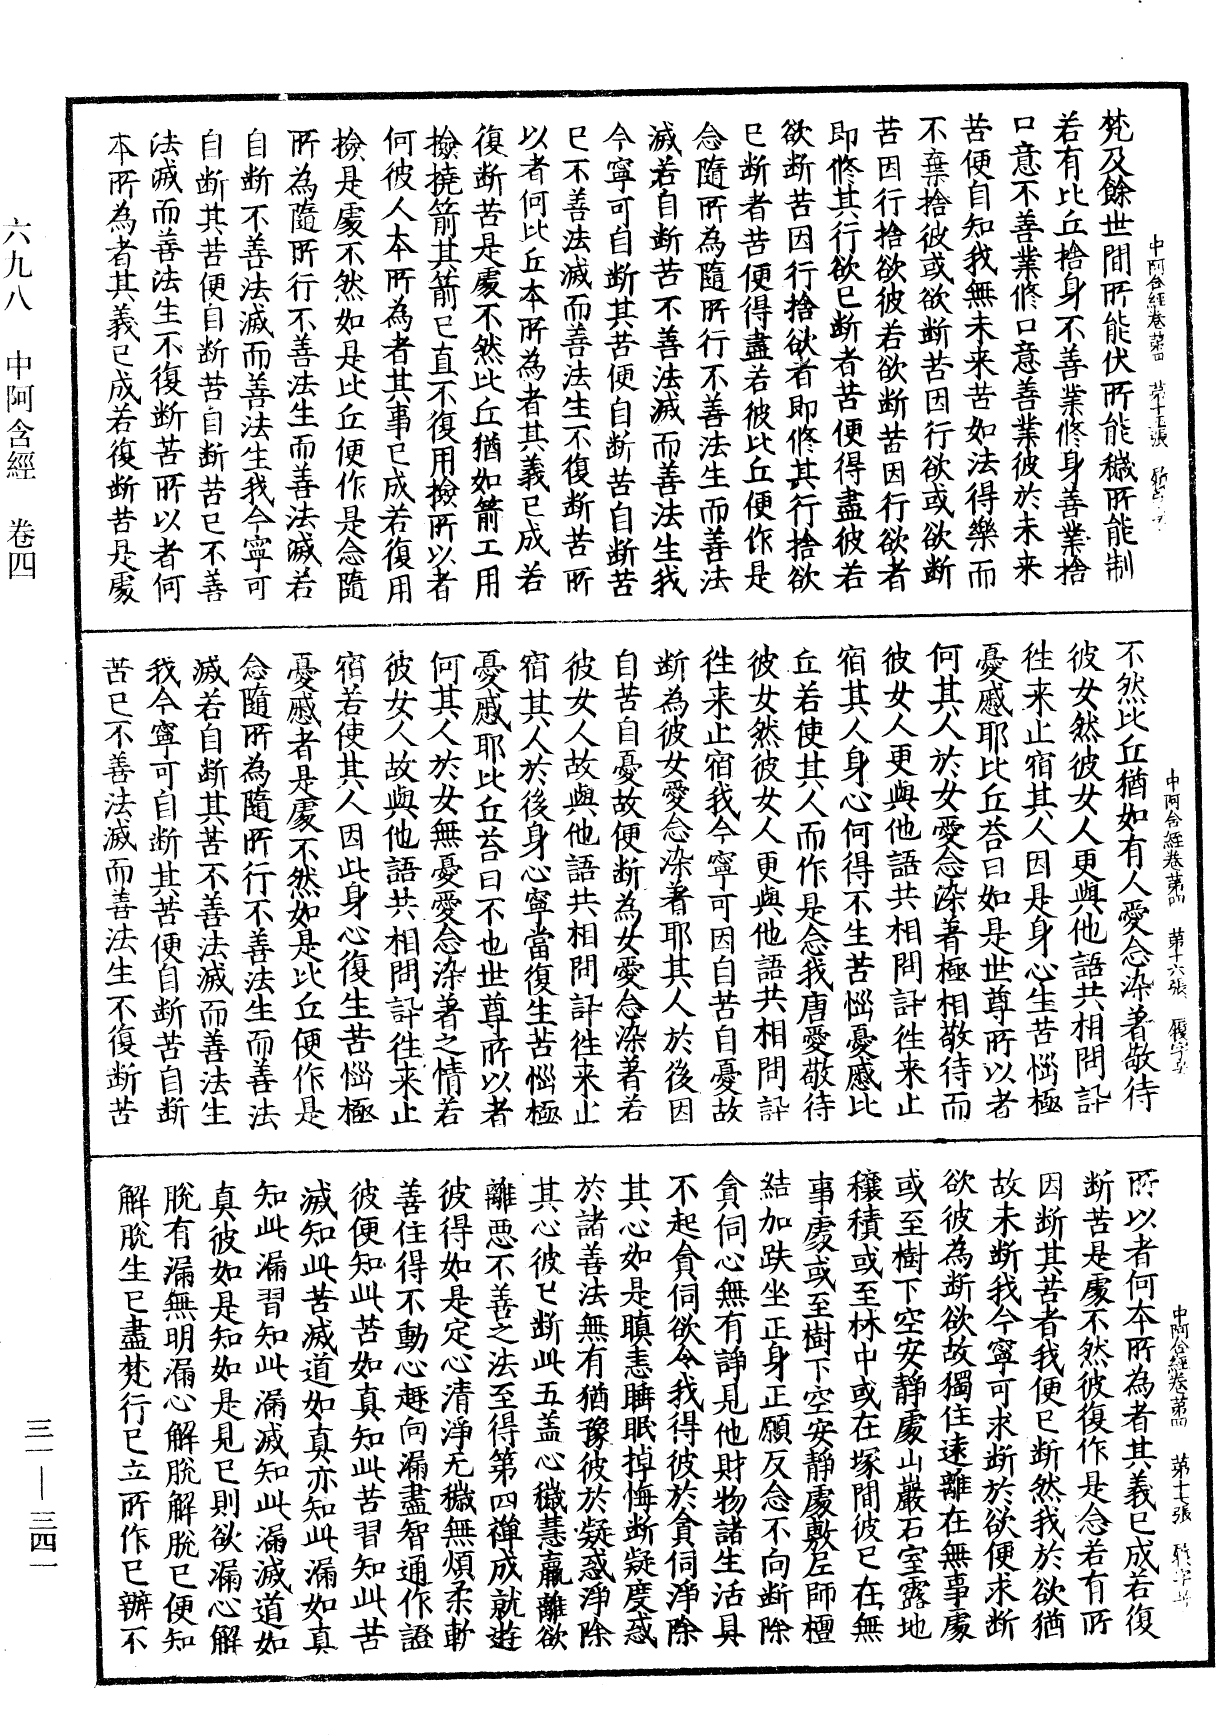 梵及餘世間所能伏所能穢所能制
若有比丘捨身不善業修身善業捨
口意不善業修口意善業彼於未来
苦便自知我無未来苦如法得樂而
不棄捨彼或欲断苦因行欲或欲断
苦因行捨欲彼若欲断苦因行欲者
即修其行欲已断者苦便得盡彼若
欲断苦因行捨欲者即修其行捨欲
已断者苦便得盡若彼比丘便作是
念隨所為隨所行不善法生而善法
滅若自断苦不善法滅而善法生我
今寧可自断其苦便自断苦自断苦
已不善法滅而善法生不復断苦所
以者何比丘本所為者其義已成若
復断苦是處不然比丘猶如箭工用
撿撓箭其箭已直不復用撿所以者
何彼人本所為者其事已成若復用
撿是處不然如是比丘便作是念隨
所為隨所行不善法生而善法滅若
自断不善法滅而善法生我今寧可
自断其苦便自断苦自断苦已不善
法滅而善法生不復断苦所以者何
本所為者其義已成若復断苦是處
中阿含經卷第四 第十五張
不然比丘猶如有人愛念染著敬待
彼女然彼女人更與他語共相問訊
往来止宿其人因是身心生苦惱極
憂慼耶比丘荅曰如是世尊所以者
何其人於女愛念染著極相敬待而
彼女人更與他語共相問訊往来止
宿其人身心何得不生苦惱憂慼比
丘若使其人而作是念我唐愛敬待
彼女然彼女人更與他語共相問訊
往来止宿我今寧可因自苦自憂故
断為彼女愛念染著耶其人於後因
自苦自憂故便断為女愛念染著若
彼女人故與他語共相問訊往来止
宿其人於後身心寧當復生苦惱極
憂慼耶比丘荅曰不也世尊所以者
何其人於女無憂愛念染著之情若
彼女人故與他語共相問訊往来止
宿若使其人因此身心復生苦惱極
憂慼者是處不然如是比丘便作是
念隨所為隨所行不善法生而善法
滅若自断其苦不善法滅而善法生
我今寧可自断其苦便自断苦自断
苦已不善法滅而善法生不復断苦
中阿含經卷第四 第十六張 履字号
所以者何本所為者其義已成若復
断苦是處不然彼復作是念若有所
因断其苦者我便已断然我於欲猶
故未断我今寧可求断於欲便求断
欲彼為断欲故獨住遠離在無事處
或至樹下空安靜處山巖石室露地
穰積或至林中或在塚間彼已在無
事處或至樹下空安靜處敷尼師檀
結加趺坐正身正願反念不向断除
貪伺心無有諍見他財物諸生活具
不起貪伺欲令我得彼於貪伺淨除
其心如是瞋恚睡眠掉悔断疑度惑
於諸善法無有猶豫彼於疑惑淨除
其心彼已断此五盖心穢慧羸離欲
離惡不善之法至得第四禪成就遊
彼得如是定心清淨无穢無煩柔軟
善住得不動心趣向漏盡智通作證
彼便知此苦如真知此苦習知此苦
滅知此苦滅道如真亦知此漏如真
知此漏習知此漏滅知此漏滅道如
真彼如是知如是見已則欲漏心解
脫有漏無明漏心解脫解脫已便知
解脫生已盡梵行已立所作已辦不
中阿含經卷第四 第十七張
六九八 中阿含經 卷四
三一—三四一